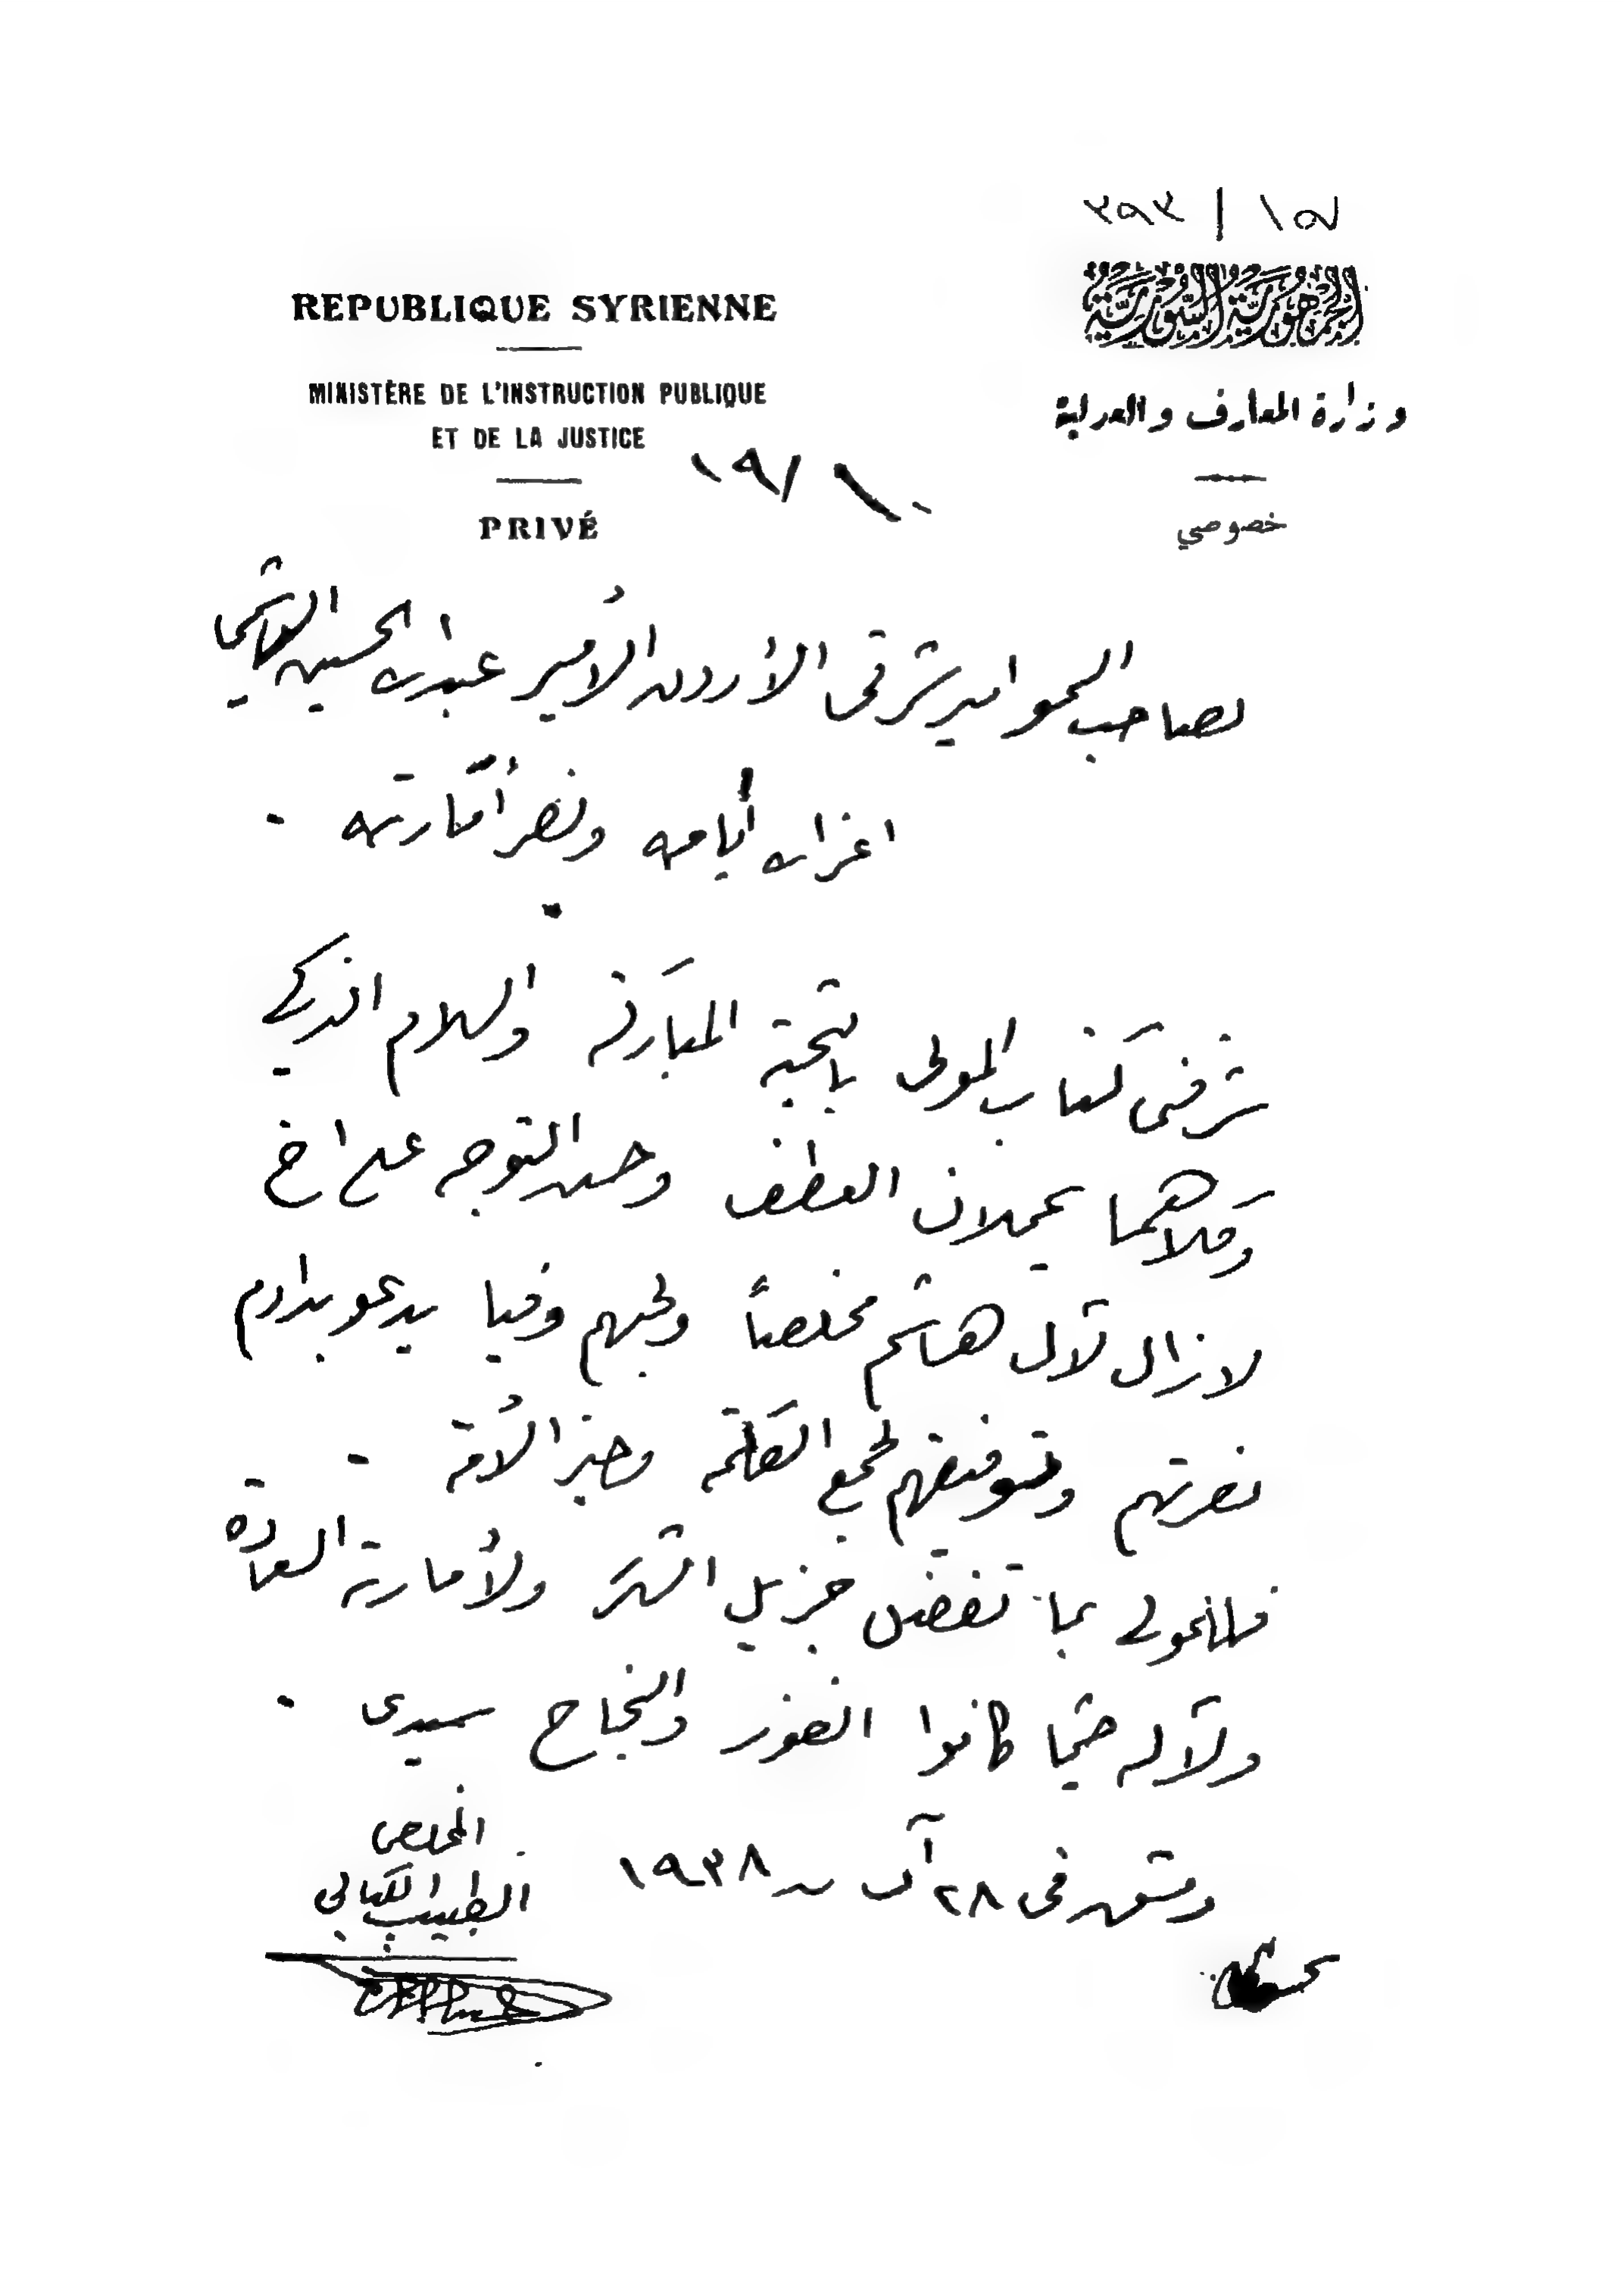 REPUBLIQUE SYRIENNE
MINISTÈRE DE L'INSTRUCTION PUBLIQUE
ET DE LA JUSTICE
PRIVÉ
الجمهورية السورية
وزارة المعارف والعدلية
خصوصي
لصاحب السمو امير شرقي الأردن الأمير عبد الله الحسين الهاشمي
اعز الله أيامه ونصر أمارته .
شرفني كتاب المولى بالتحية المباركة والسلام الزكي
وكلاهما يحملان العطف وحسن التوجه على اخ
لازال لآل هاشم مخلصاً ولحبهم وفيا يدعو بدوام
نصرتهم وتوفيقهم لجمع الكلمة وخير الأمة .
فللمولى بما تفضل جزيل الشكر ولأمارته السعادة
ولآله حيثما كانوا الفوز والنجاح سيدي .
دمشق في ٢٨ آب سنة ١٩٣٨
المخلص
الطبيب الكيالي